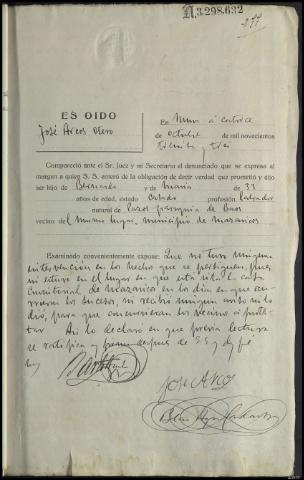 A.3.298.632
ES OIDO
José Arcos Otero
En Muros a catorce
de octubre de mil novecientos
treinta y tres
Compareció ante el Sr. Juez y mi Secretario el denunciado que se expresa al
margen a quien S. S. enteró de la obligación de decir verdad que prometió y dijo
ser hijo de Bernardo y de María de 33
años de edad, estado casado profesión labrador
natural de parroquia de
vecino del mismo lugar, municipio de Mazaricos
Examinado convenientemente expone: Que no tuvo ninguna
intervención en los hechos que se persiguen, pues
ni estuvo en el lugar en que está sita la casa
Consistorial de Mazaricos en los días en que ocu-
rrieron los sucesos, ni recibió ningún aviso ni lo
dió, para que concurrieran los vecinos a protes-
tar. Así lo declaró en que previa lectura
se ratifica y firma después de S.S. doy fé.
José Arcos